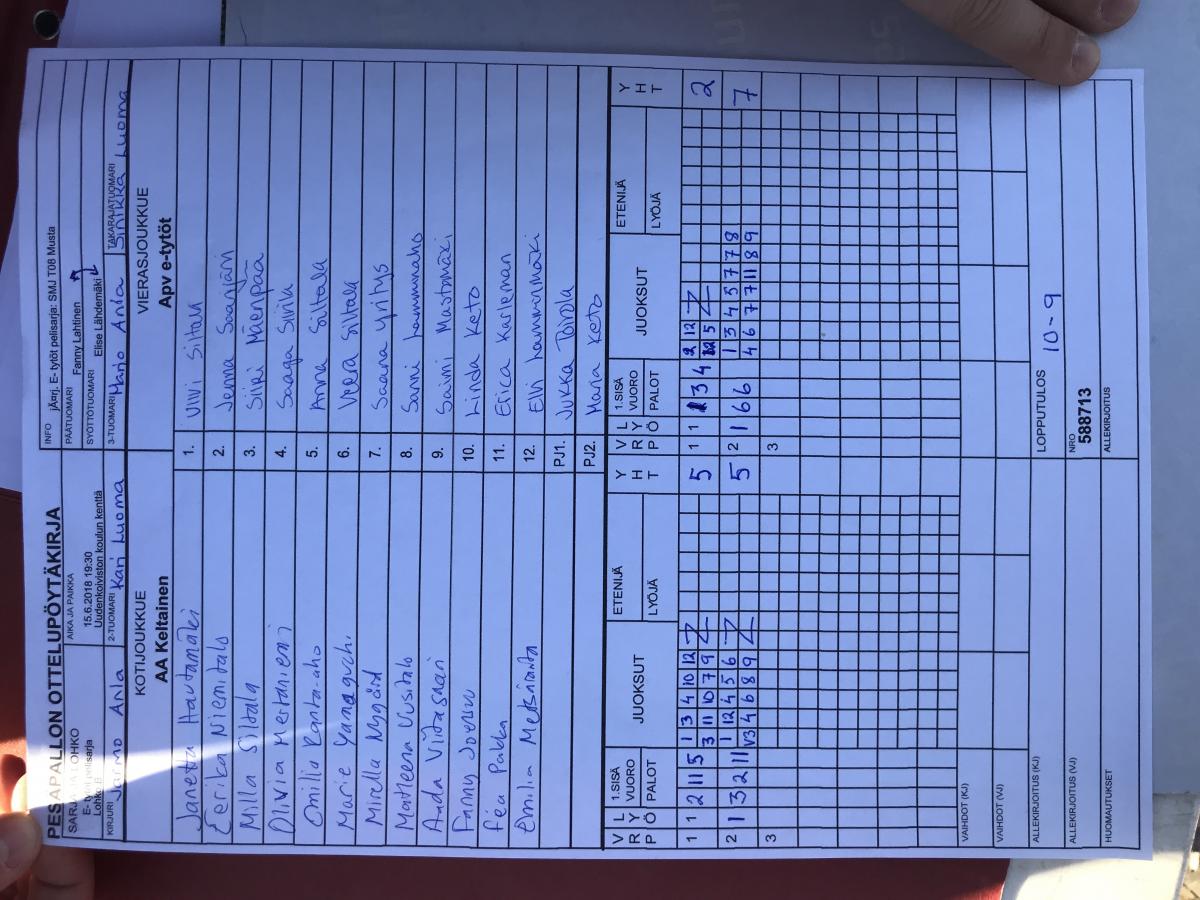 PESAPALLON OTTELUPÖYTÄKIRJA
SARJA JA LOHKO
E- tytöt pelisarja
AIKA JA PAIKKA
15.6.2018 19:30
Uudenkoiviston koulun kenttä
INFO jÄrj. E- tytöt pelisarja: SMJ T08 Musta
PÄÄTUOMARI Fanny Lahtinen
SYÖTTÖTUOMARI Elise Lähdemäki
KIRJURI Jarmo Anla
2-TUOMARI Kari Luoma
3-TUOMARI Marjo Anla
TAKARAJATUOMARI Sinikka Luoma
KOTIJOUKKUE VIERASJOUKKUE
AA Keltainen Apv e-tytöt
Janetta Hautamäki 1. Ulvi Siltala
Eerika Niemitalo 2. Jenna Saarijärvi
Milla Siltala 3. Siiri Mäenpää
Olivia Mertaniemi 4. Saaga Siirilä
Omilia Ranta-aho 5. Anna Siltala
Marie Yamaguchi 6. Veera Siltala
Mirella Nygård 7. Saana Yritys
Matleena Uusitalo 8. Sanni
Anda Viitasaari 9. Saimi Mastomäki
Fanny Joensuu 10. Linda Keto
Pakka 11. Erica Karleman
Emilia Metsäranta 12. Elvi
PJ1. Jukka Toivola
PJ2. Maria Keto
V R P L Y Ö 1.SISÄ VUORO PALOT JUOKSUT ETENIJÄ LYÖJÄ Y H T V R P L Y Ö 1.SISÄ VUORO PALOT JUOKSUT ETENIJÄ LYÖJÄ Y H T
1 1 2 11 5 1 3 4 10 12 5 1 1 1 3 4 2 12 2
3 11 10 7 9 12 5
2 1 3 2 11 1 12 4 5 6 5 2 1 6 6 1 3 4 5 7 7 8 7
V3 4 6 8 9 4 6 7 7 11 8 9
3 3
VAIHDOT (KJ)
VAIHDOT (VJ)
ALLEKIRJOITUS (KJ) LOPPUTULOS 10-9
ALLEKIRJOITUS (VJ) NRO 588713
HUOMAUTUKSET ALLEKIRJOITUS